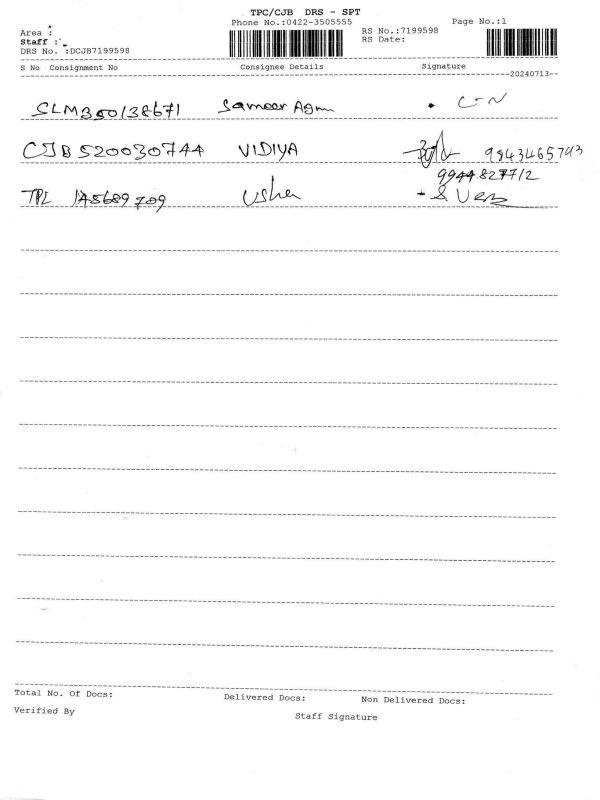 TPC/CJB DRS - SPT
Phone No.:0422-3505555 Page No.:1
Area : RS No.:7199598
Staff : RS Date:
DRS No. :DCJB7199598
S No Consignment No Consignee Details Signature
20240713
SLM350138671 Sameer Agm
CJB520030744 VIDIYA 9843465793
9944827712
TPL 145689709 Usha
Total No. Of Docs: Delivered Docs: Non Delivered Docs:
Verified By Staff Signature